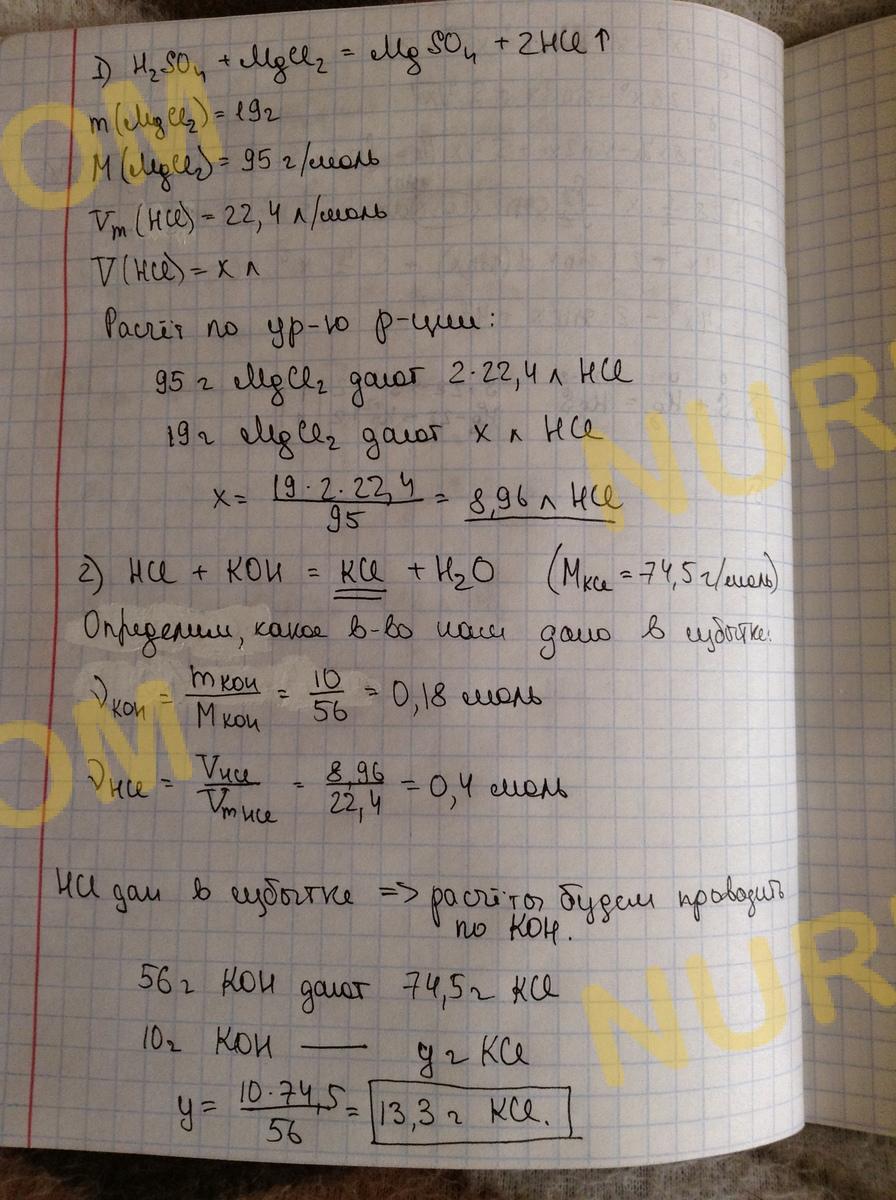 1) H₂SO₄ + MgCl₂ = MgSO₄ + 2HCl ↑
m(MgCl₂) = 19 г
M(MgCl₂) = 95 г/моль
Vm(HCl) = 22,4 л/моль
V(HCl) = x л
Расчёт по ур-ю р-ции:
95 г MgCl₂ дают 2·22,4 л HCl
19 г MgCl₂ дают x л HCl
x = 19·2·22,4 / 95 = 8,96 л HCl
2) HCl + KOH = KCl + H₂O (M KCl = 74,5 г/моль)
Определим, какое в-во нам дано в избытке:
ν KOH = m KOH / M KOH = 10 / 56 = 0,18 моль
ν HCl = V HCl / Vm HCl = 8,96 / 22,4 = 0,4 моль
HCl дан в избытке => расчёты будем проводить
по KOH.
56 г KOH дают 74,5 г KCl
10 г KOH — y г KCl
y = 10·74,5 / 56 = 13,3 г KCl.
OM
NUR
OM
NUR